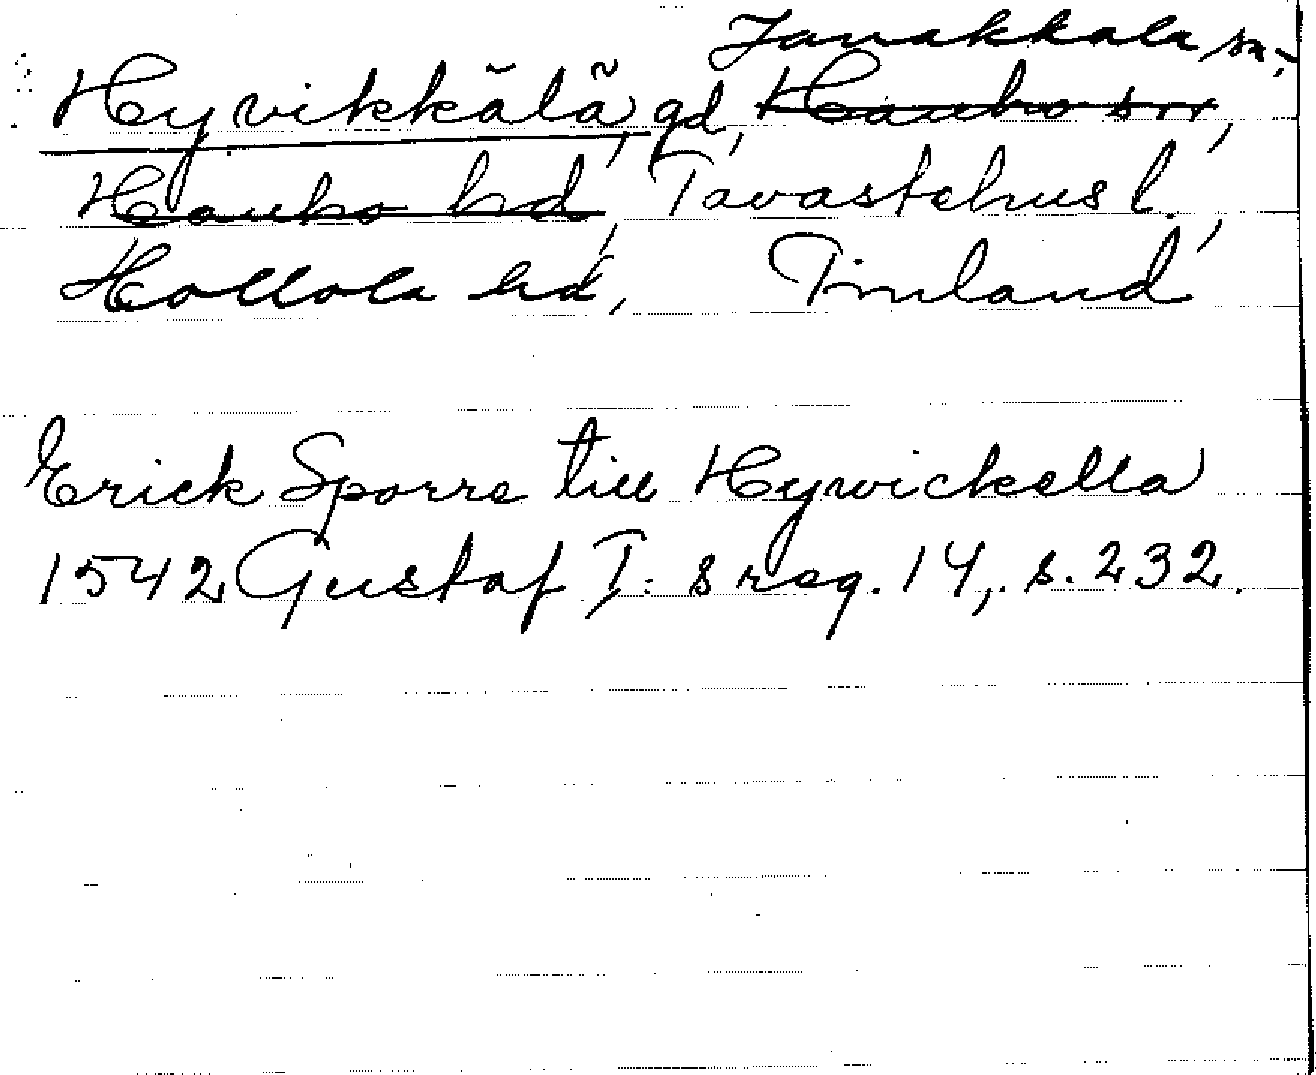 Janakkala sn;
Hyvikkälä, gd, Hauho sn,
Hauho hd, Tavastehus l.,
Hollola hd, Finland
Erick Sporre till Hywickella
1542 Gustaf I:s reg. 14, s. 232.